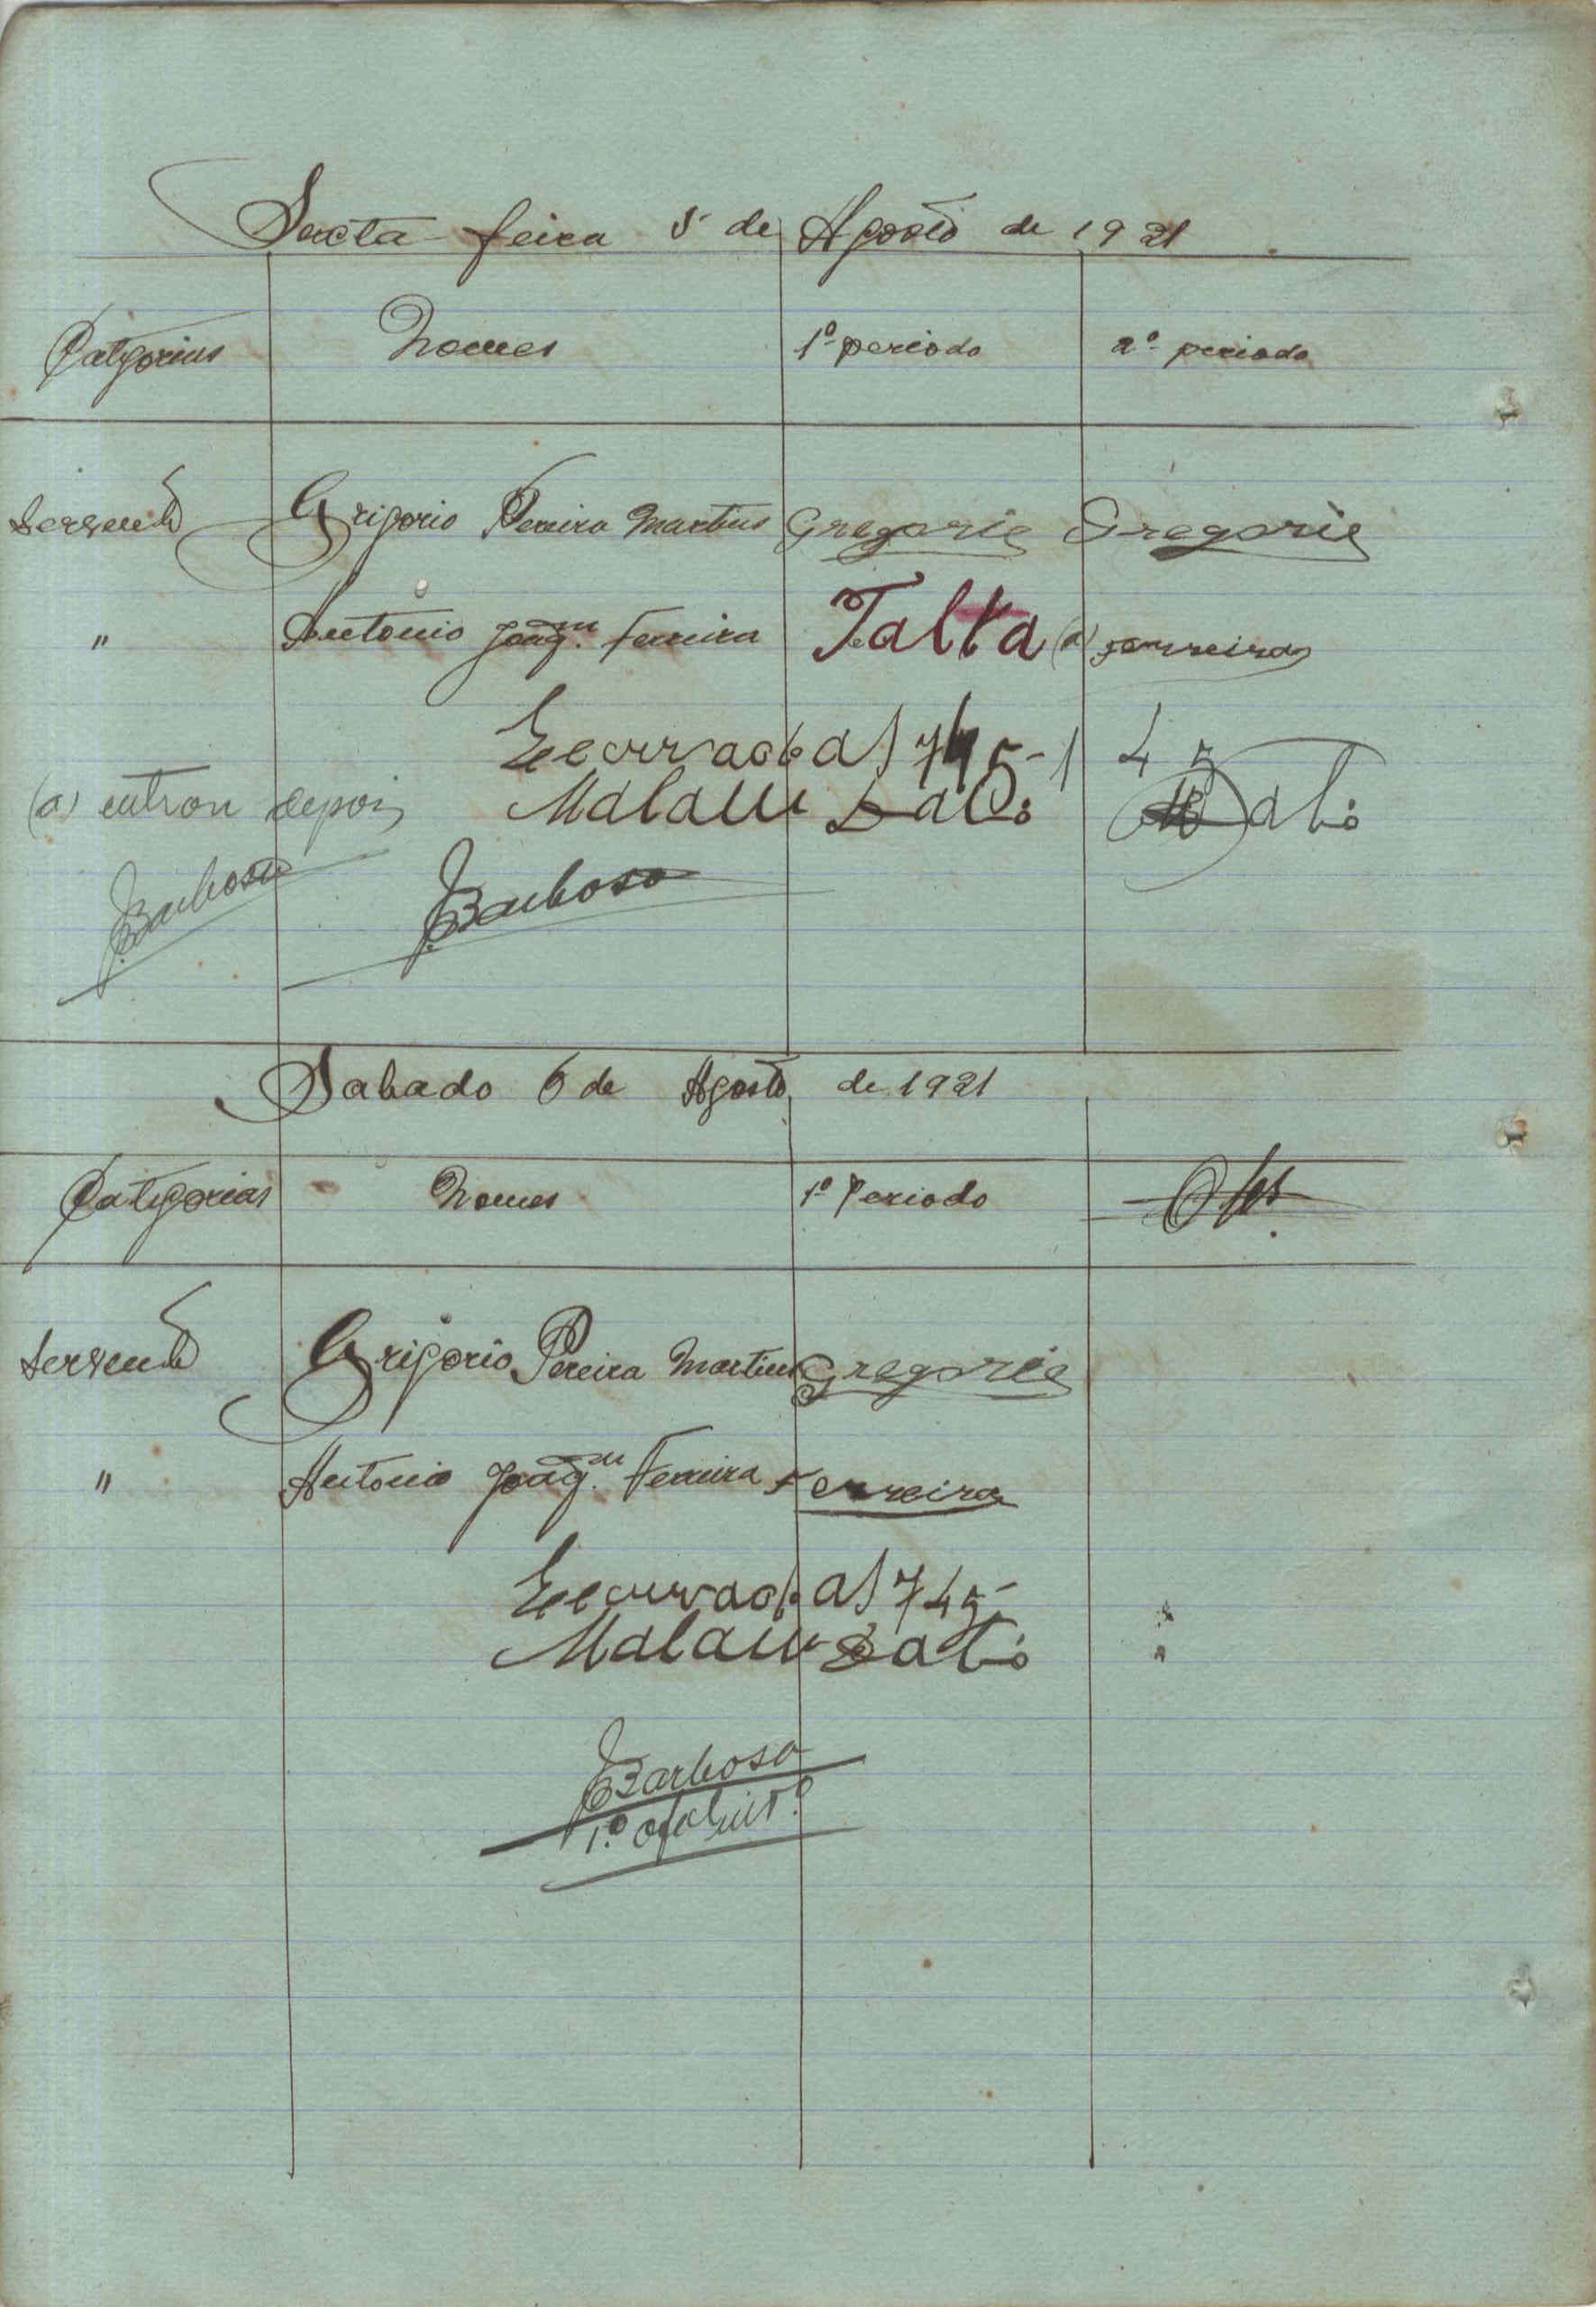 Sexta-feira 5 de Agosto de 1921
Categorias Nomes 1º periodo 2º periodo
Servente Grigorio Pereira Martins Gregorio Gregorio
" Antonio Joaqm. Ferreira Falta (a) Ferreira
Encerrado as 745- 1 45
(a) entrou depois Malam Dabó Dabó
Barbosa Barbosa
Sabado 6 de Agosto de 1921
Categorias Nomes 1º Periodo Obs.
Servente Grigorio Pereira Martins Gregorio
" Antonio Joaqm. Ferreira Ferreira
Encerrado as 745-
Malam Dabó
Barbosa
1.º